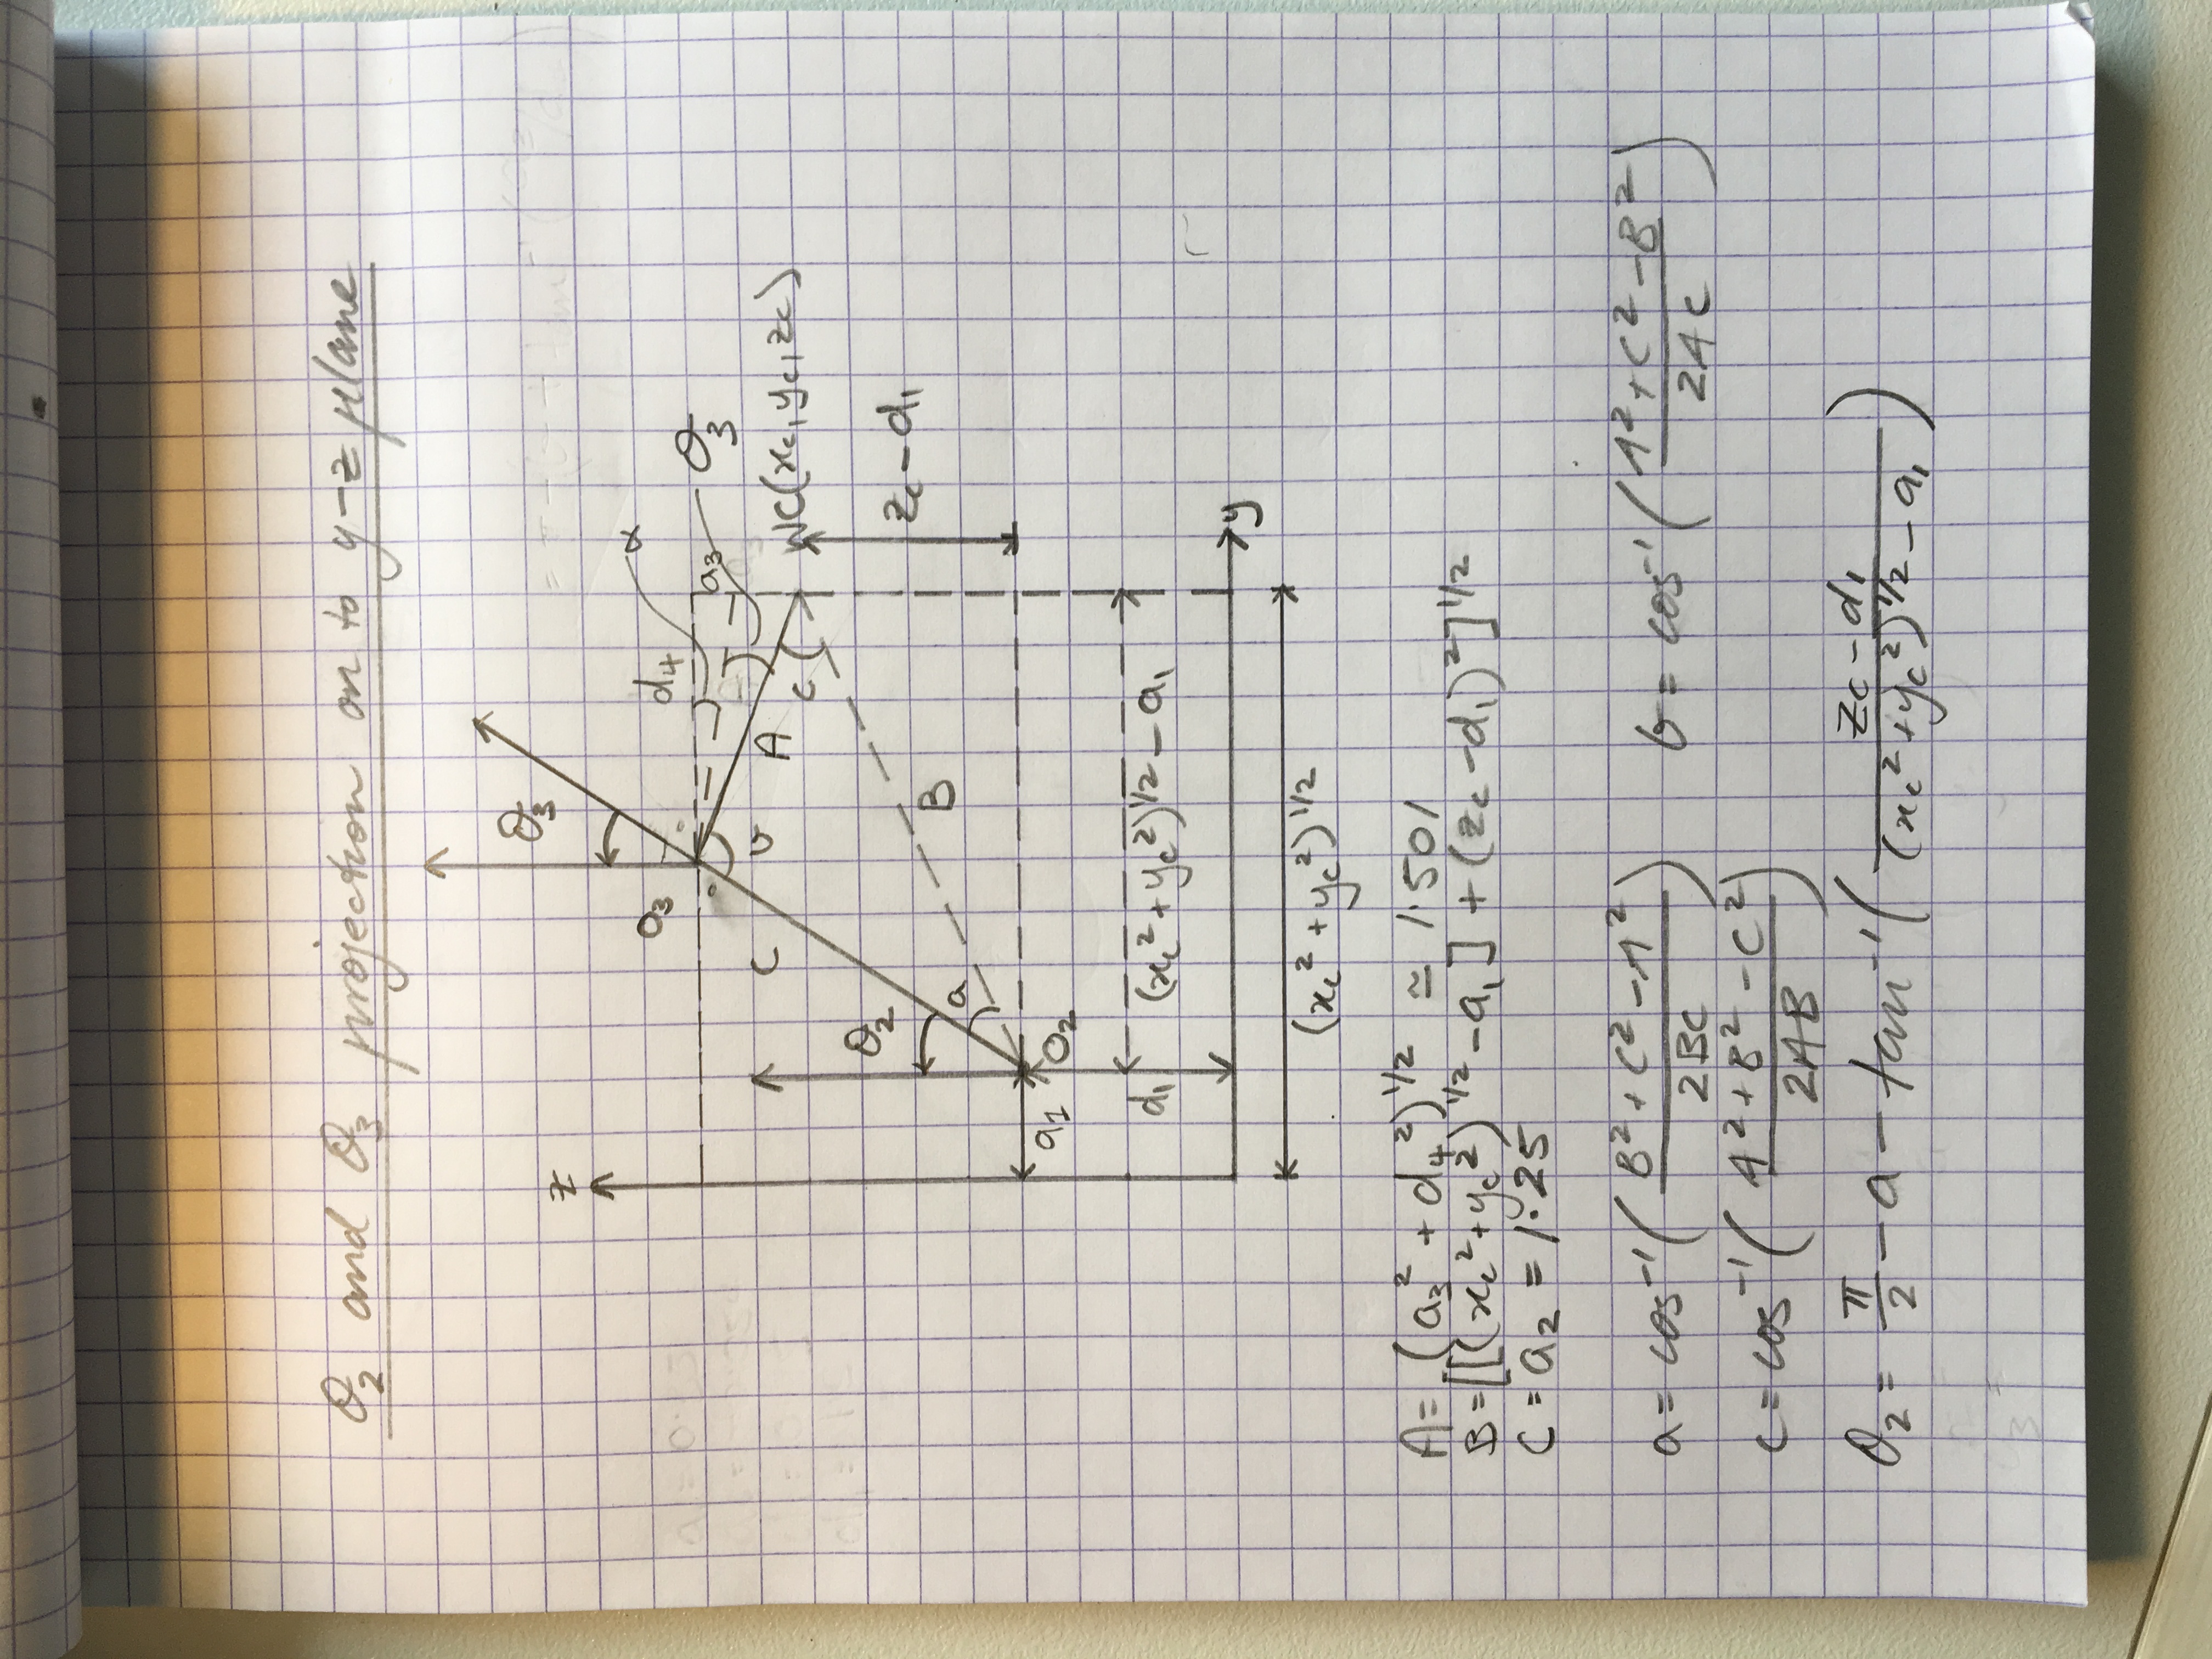 θ₂ and θ₃ projection on to y-z plane
θ₃
z
O₃
d₄
α
a₃
θ₃
C
b
A
c
WC(xc, yc, zc)
θ₂
zc - d₁
a
B
a₁
O₂
d₁
(xc² + yc²)^1/2 - a₁
y
(xc² + yc²)^1/2
A = (a₃² + d₄²)^1/2 ≃ 1.501
B = [[(xc² + yc²)^1/2 - a₁] + (zc - d₁)²]^1/2
C = a₂ = 1.25
a = cos⁻¹((B² + C² - A²) / 2BC) b = cos⁻¹((A² + C² - B²) / 2AC)
c = cos⁻¹((A² + B² - C²) / 2AB)
θ₂ = π/2 - a - tan⁻¹((zc - d₁) / ((xc² + yc²)^1/2 - a₁))